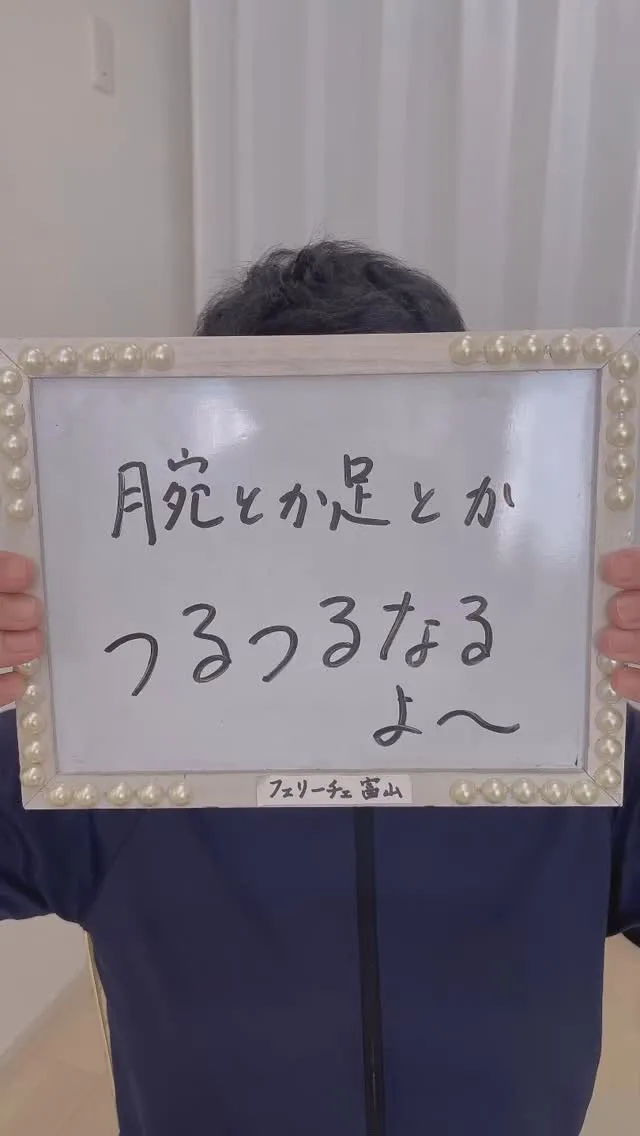 腕とか足とか
つるつるなる
よ〜
フェリーチェ 富山